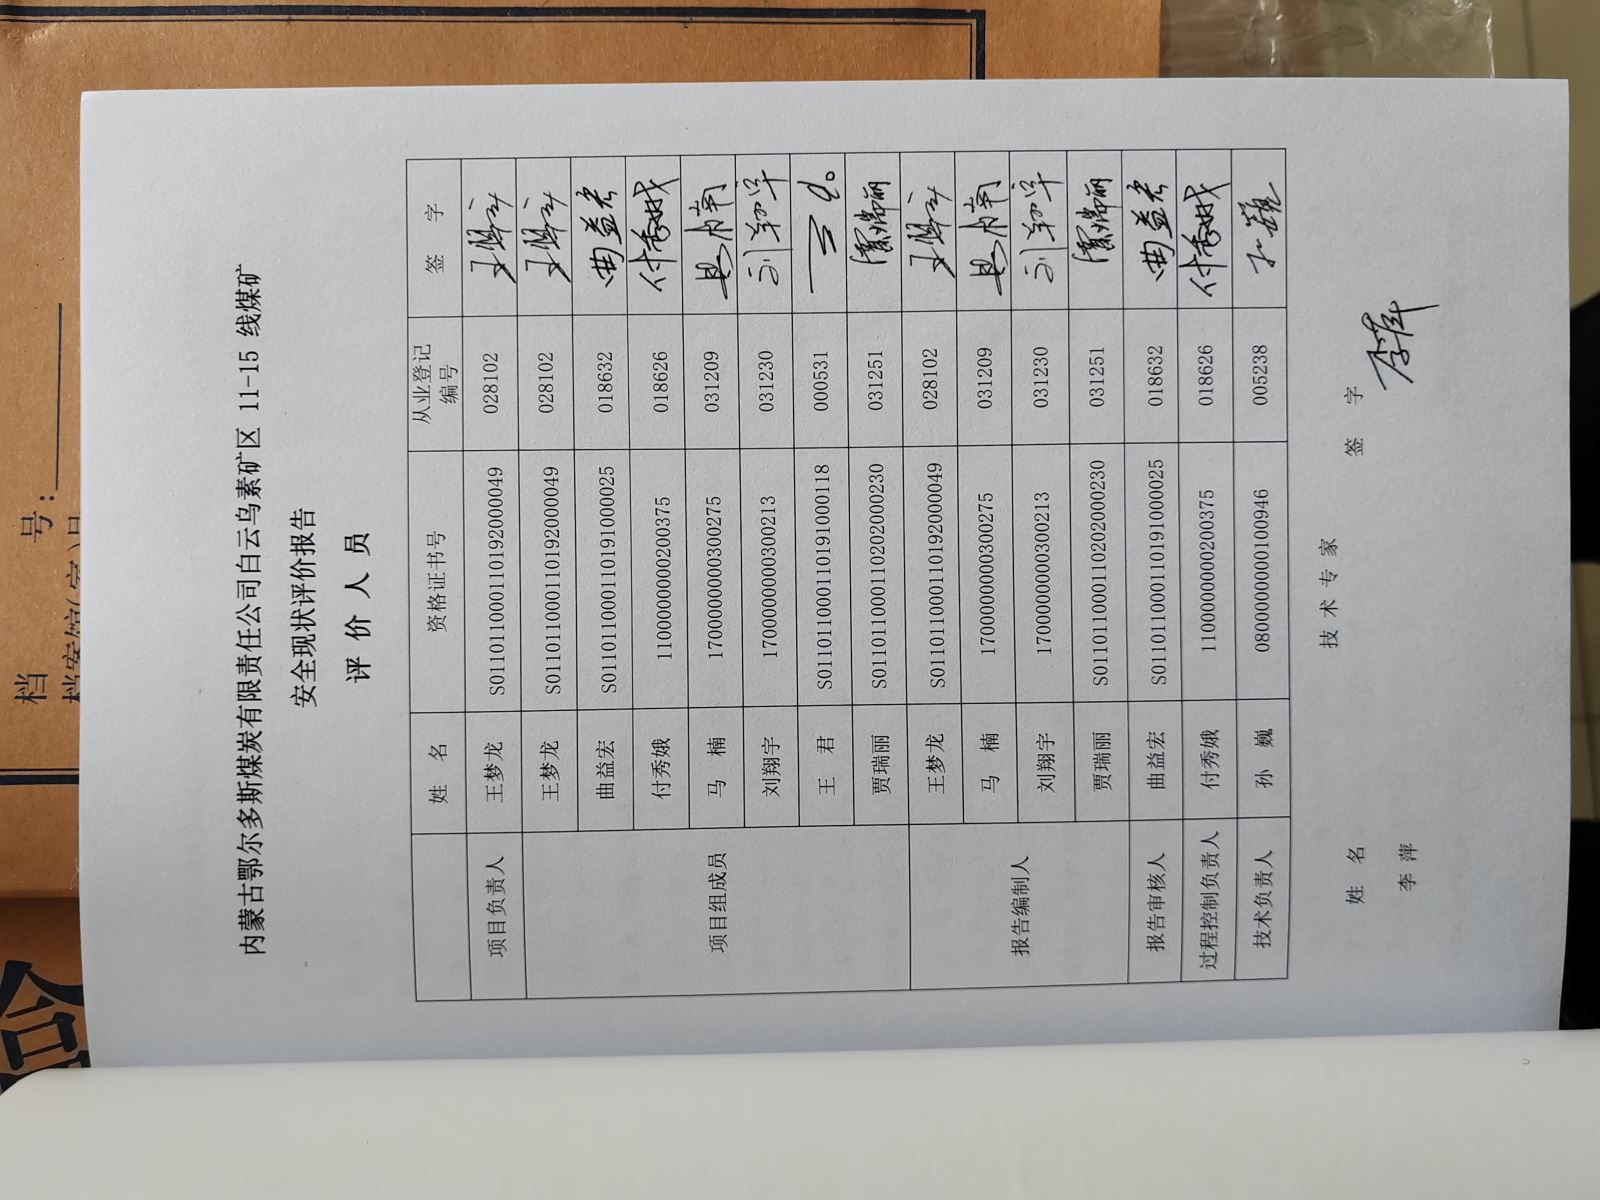 内蒙古鄂尔多斯煤炭有限责任公司白云乌素矿区 11-15 线煤矿
安全现状评价报告
评 价 人 员
姓 名 资格证书号 从业登记编号 签 字
项目负责人 王梦龙 S011011000110192000049 028102 王梦龙
项目组成员 王梦龙 S011011000110192000049 028102 王梦龙
曲益宏 S011011000110191000025 018632 曲益宏
付秀娥 1100000000200375 018626 付秀娥
马 楠 1700000000300275 031209 马楠
刘翔宇 1700000000300213 031230 刘翔宇
王 君 S011011000110191000118 000531 王君
贾瑞丽 S011011000110202000230 031251 贾瑞丽
报告编制人 王梦龙 S011011000110192000049 028102 王梦龙
马 楠 1700000000300275 031209 马楠
刘翔宇 1700000000300213 031230 刘翔宇
贾瑞丽 S011011000110202000230 031251 贾瑞丽
报告审核人 曲益宏 S011011000110191000025 018632 曲益宏
过程控制负责人 付秀娥 1100000000200375 018626 付秀娥
技术负责人 孙 巍 0800000000100946 005238 孙巍
技 术 专 家
姓 名 签 字
李 萍 李萍
档 号：